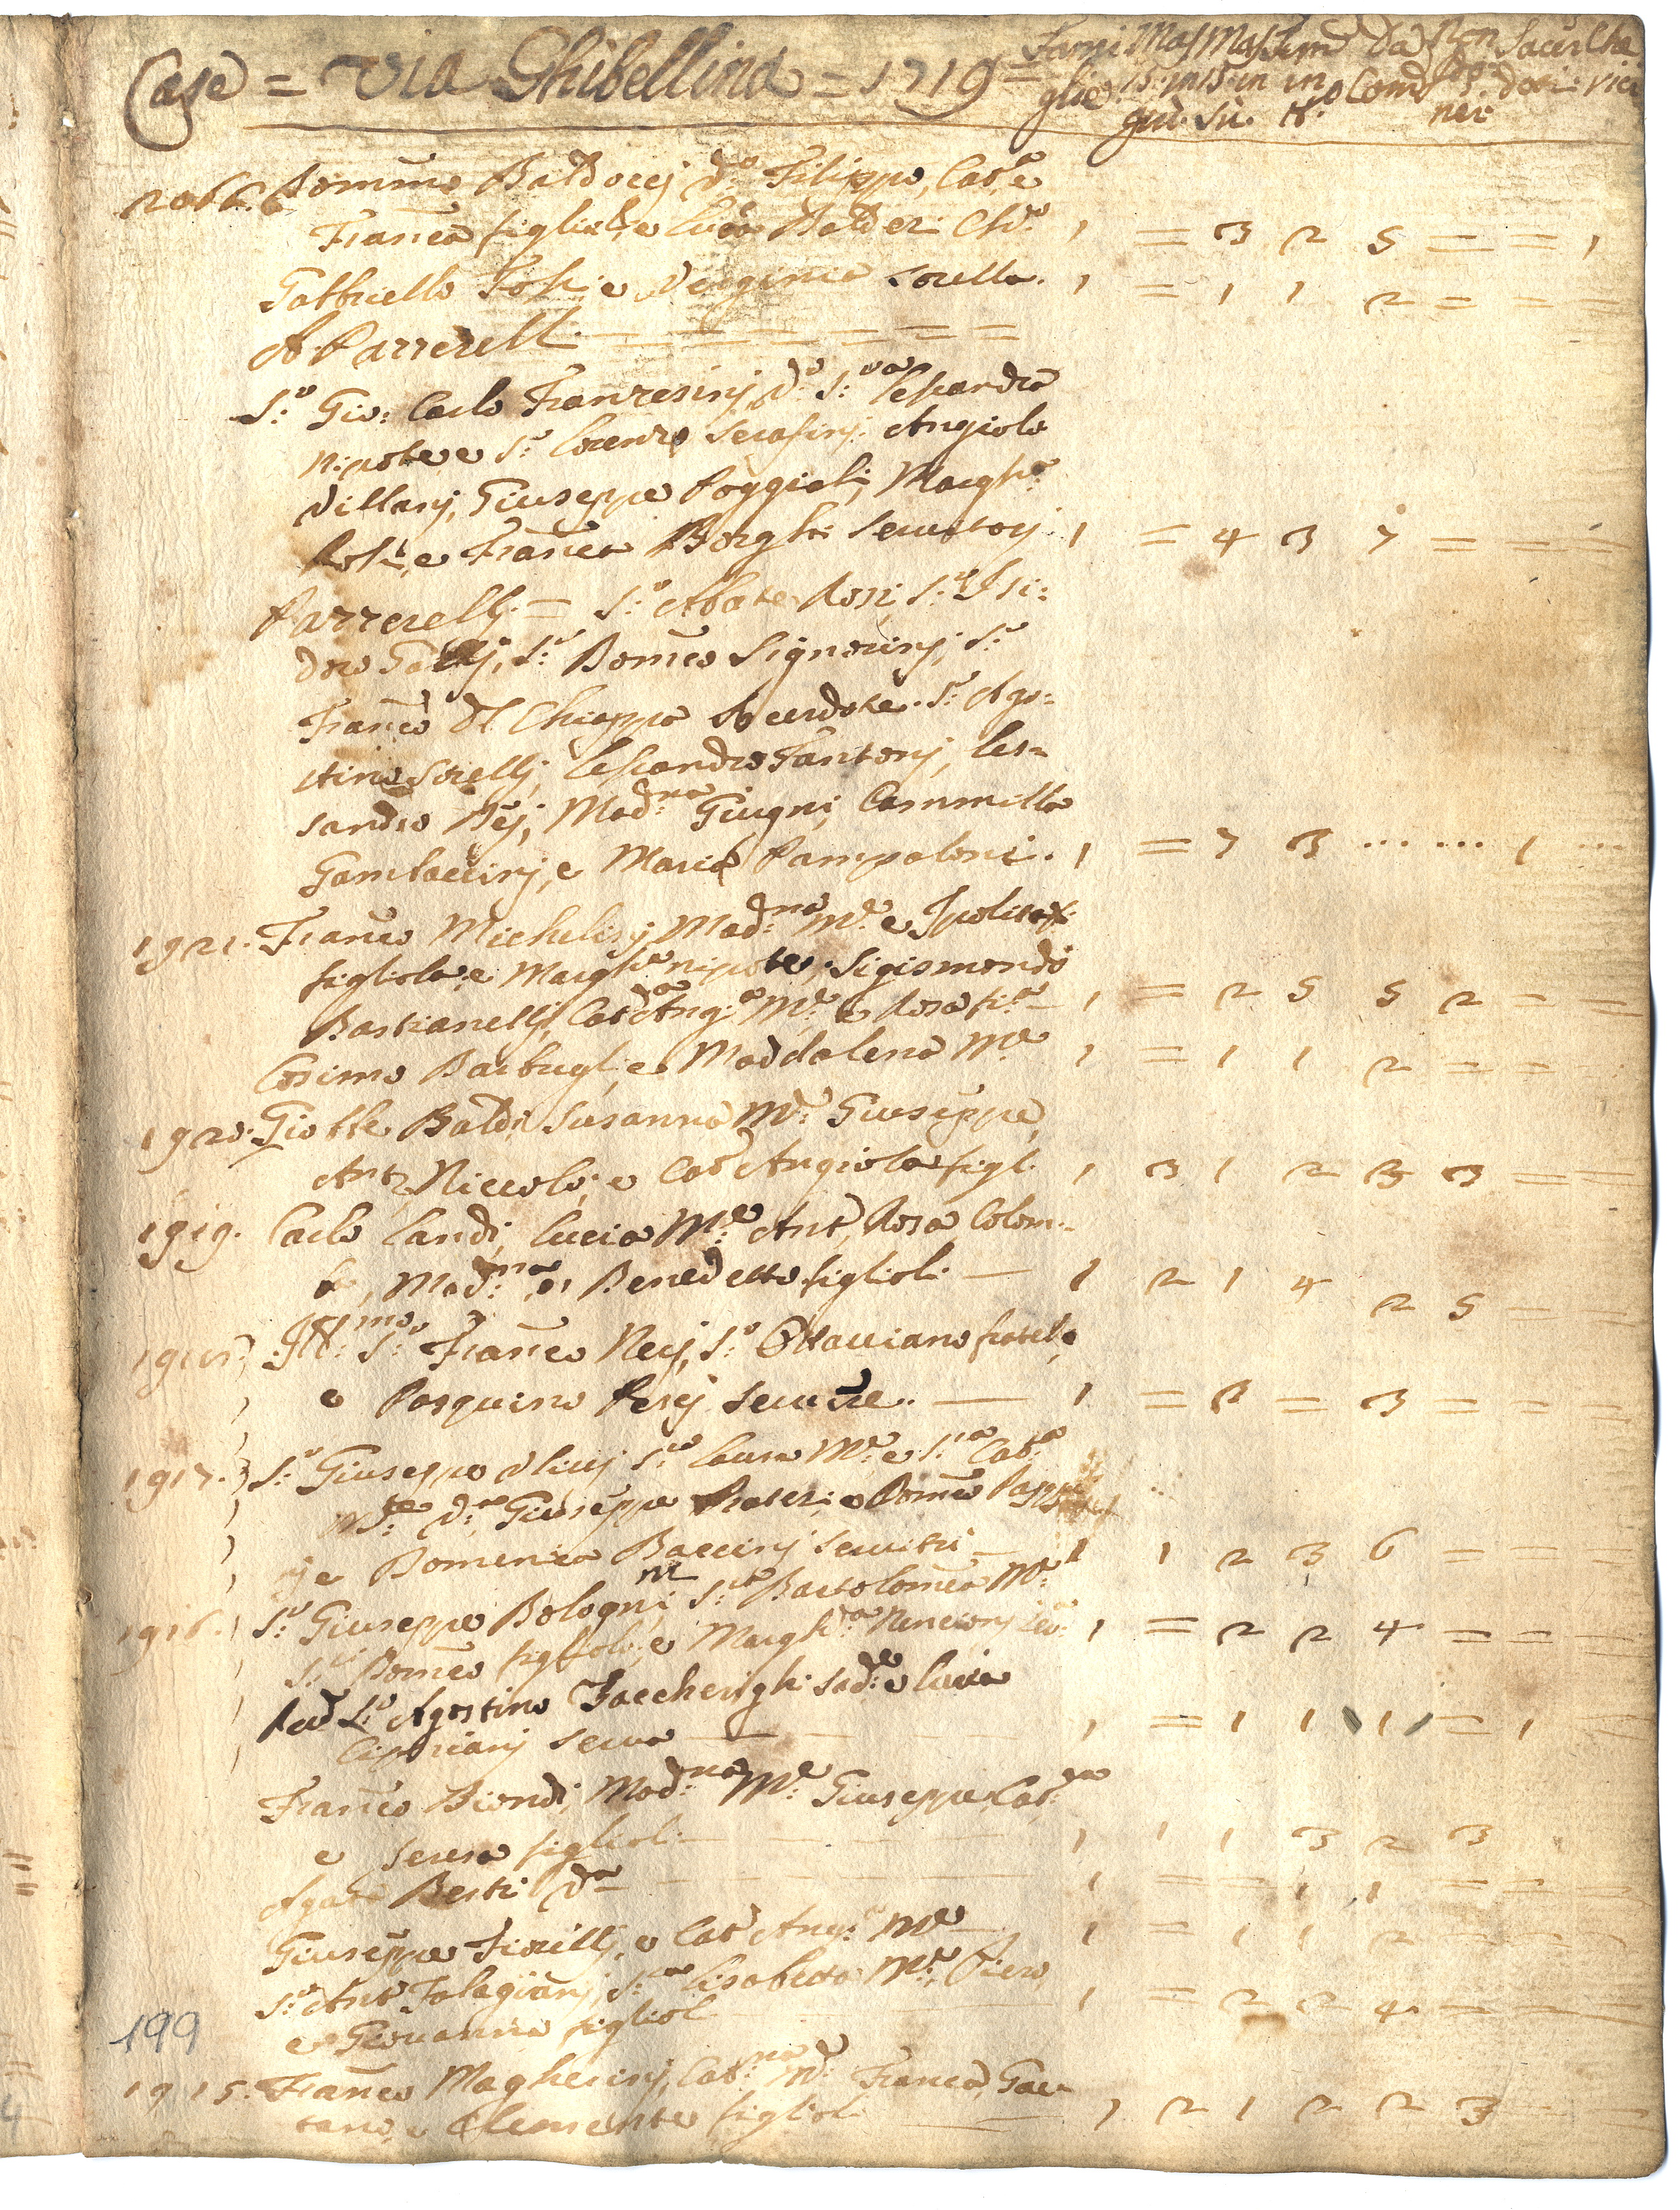 Case = Via Ghibellina = 1719 =
Fami Mas Mas Fem Da Non Sacer Che
glie 15 in 15 in in Com Com dori rici
giù. sù. N.o ner
2066. Domco Baldocej Filippo, Cata e
Franca figlioli, e Luca Balder: Chco 1 = 3 2 5 = = 1
Gabbriello Tosi, e Verginia sorella. 1 = 1 1 2 = = =
A Pazzerell. = = = = = =
S.r Gio: Carlo Franzesinj, S.ra Lessandra
nipote e S.r Lorenzo Serafinj. Angiolo
Villanj, Giuseppe Poggiali, Margh.a
Rosi, e Franca Borghi servitorj. 1 = 4 3 7 = = =
Pazzerellj = S.r Abate Rosi, S.r Isi:
doro Gallj, S.r Domco Signorinj, S.r
Franco Del Chiappa Sacerdote. S.r Ago:
stino Sorellj, Lessandro Fantonj, Les=
sandro Bej, Mad.na Giugni, Cammilla
Gambaccinj, e Maria Pampaloni. 1 = 7 3 ... ... 1 ...
1921. Franco Michelinj, Mad.na M.e e Ipolita
figliola, e Margh.a nipote, Sigismondo
Bastianellj, Cat.a Ang.a M.e e Rosa fi.a 1 = 2 5 5 2 = =
Cosimo Barbugl, e Maddalena M.e 1 = 1 1 2 = =
1920. Gio Bta Baldi, Susanna M.e Giuseppe,
Ant.o Niccolò, e Cat.a Angiola figl. 1 3 1 2 3 3 = =
1919. Carlo Landi, Lucia M.e Ant.o, Rosa Colom=
ba, Mad.na, e Benedetto figlioli — 1 2 1 4 2 5 = =
1918. Ill.mo S.r Franco Nerj, S.r Ottaviano fratello,
e Pasquino Resej servitre. — 1 = 3 = 3 = = =
1917. S.r Giuseppe Ulivj S.ra Laura M.e e S.ra Cat.a
M.re Giuseppe Frateri, e Domco Papp
j e Domenica Baccinj servitri — 1 1 2 3 6 = = =
1916. S.r Giuseppe Bologni, S.ra Bartolomea M.e
S.r Domco figliolo, e Margh.a Nencionj ser. 1 = 2 2 4 = = =
Rev. S.r Agostino Zaccherighi sad.e e Lucia
Ciprianj serva — 1 = 1 1 1 = 1
Franco Biondi, Mad.na M.e Giuseppe, Cat.na
e Teresa figlioli — 1 1 1 3 2 3
Agata Berti — 1 = = 1 1 = = =
Giuseppe Fiorillj, e Cat.a Ang.a M.e 1 = 1 1 2 = = =
S.r Ant.o Falagianj, S.ra Lisabetta M.e, Piero
e Giovanna figlioli 1 = 2 2 4 = = =
199
1915. Franco Magherinj, Cat.na M.e Franca, Gae=
tano, e Clemente figlioli — 1 2 1 2 2 3 = =